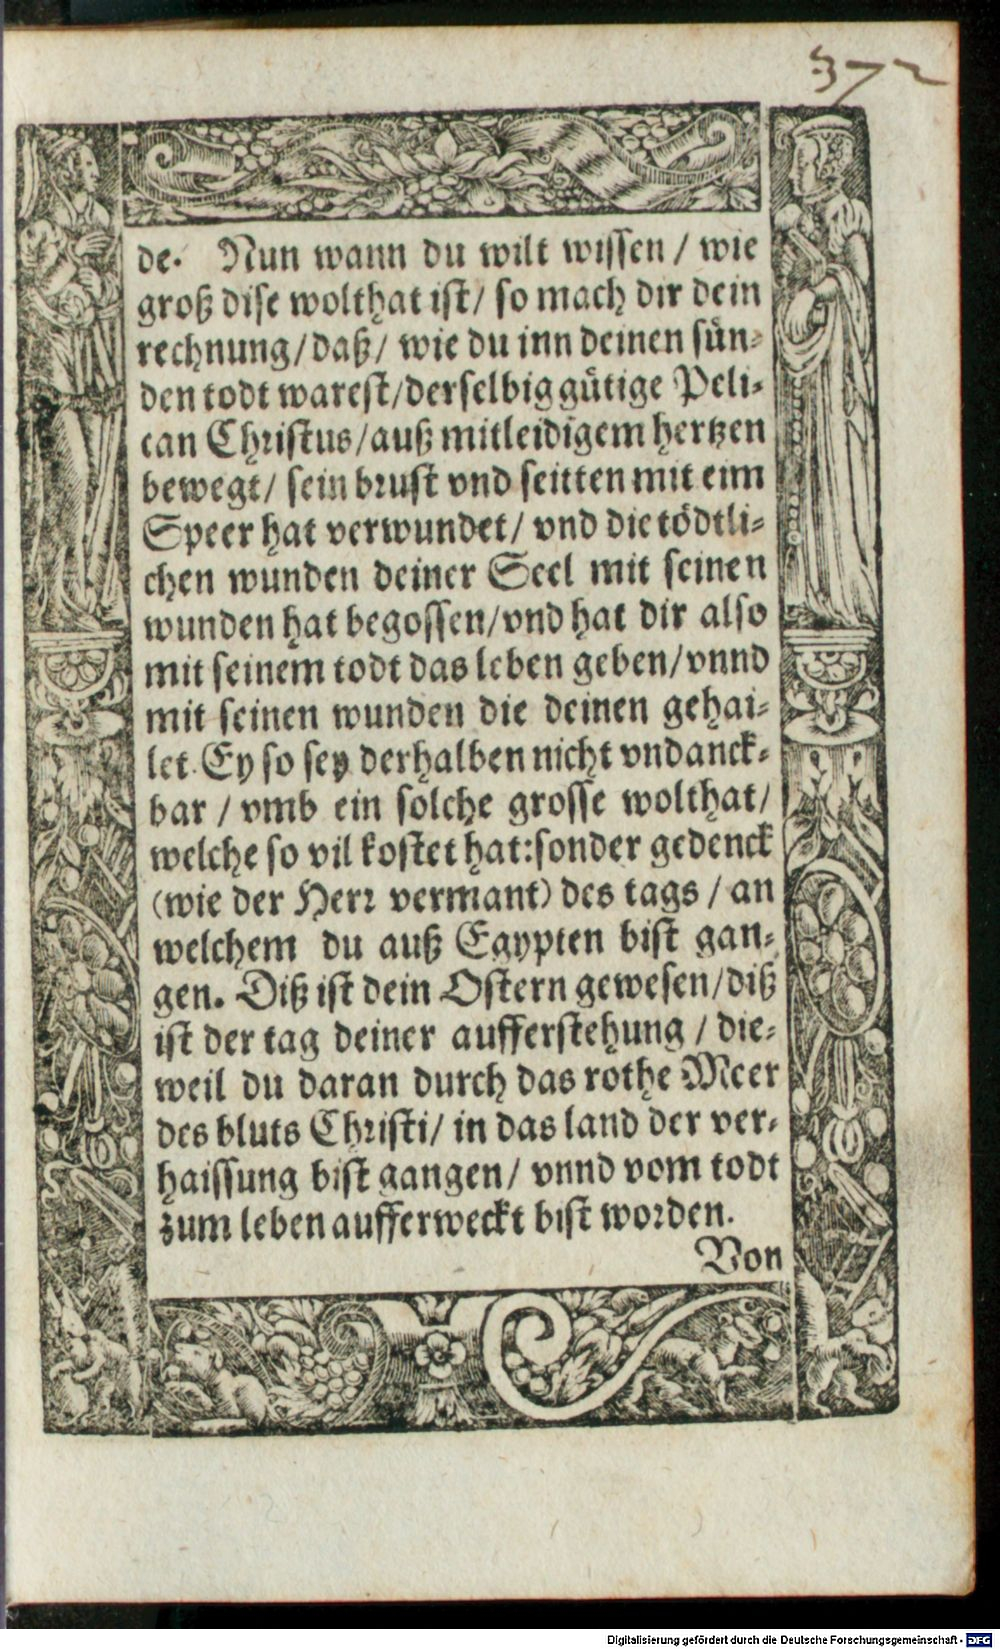 372
de. Nun wann du wilt wissen / wie
groß dise wolthat ist / so mach dir dein
rechnung / daß / wie du inn deinen sün-
den todt warest / derselbig gütige Peli-
can Christus / auß mitleidigem hertzen
bewegt / sein brust vnd seitten mit eim
Speer hat verwundet / vnd die tödtli-
chen wunden deiner Seel mit seinen
wunden hat begossen / vnd hat dir also
mit seinem todt das leben geben / vnnd
mit seinen wunden die deinen gehai-
let. Ey so sey derhalben nicht vndanck-
bar / vmb ein solche grosse wolthat /
welche so vil kostet hat: sonder gedenck
(wie der Herr vermant) des tags / an
welchem du auß Egypten bist gan-
gen. Diß ist dein Ostern gewesen / diß
ist der tag deiner aufferstehung / die-
weil du daran durch das rothe Meer
des bluts Christi / in das land der ver-
haissung bist gangen / vnnd vom todt
zum leben aufferweckt bist worden.
Von
Digitalisierung gefördert durch die Deutsche Forschungsgemeinschaft - DFG